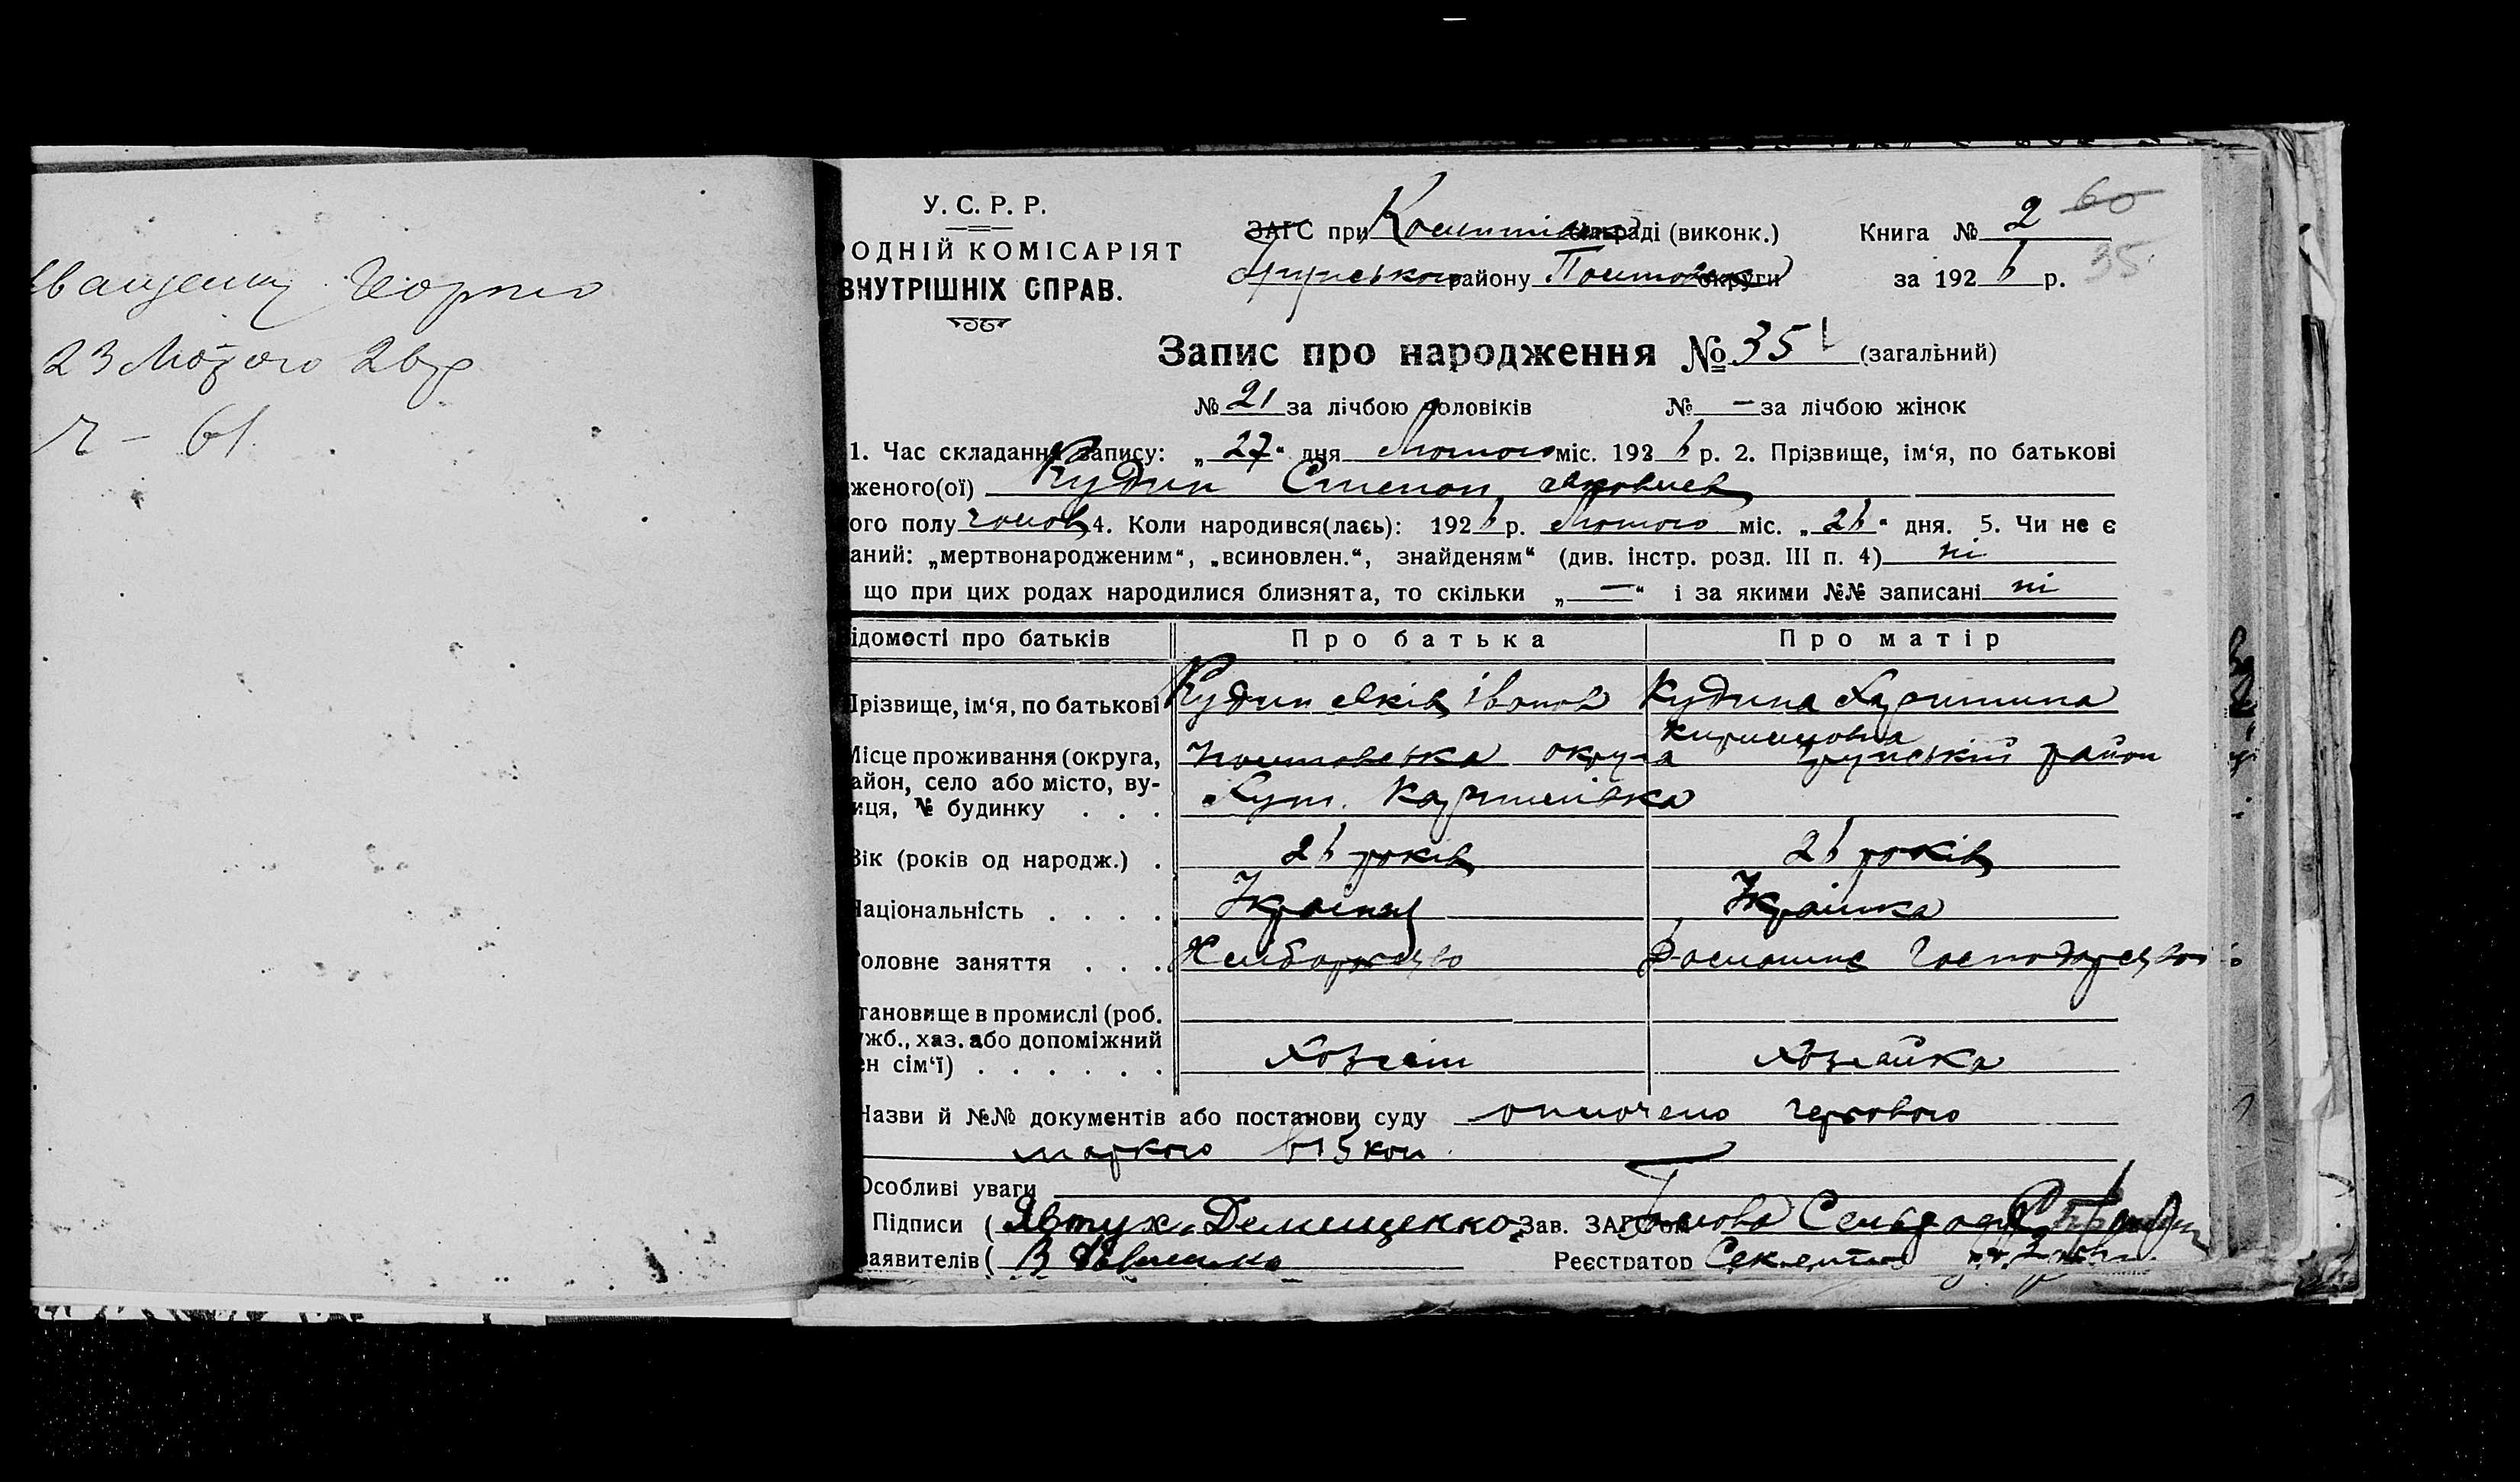 Іващенку Георгію
23 Лютого 26 р
ч – 61.
У. С. Р. Р.
РОДНІЙ КОМІСАРІЯТ
ВНУТРІШНІХ СПРАВ.
ЗАГС при сільраді (виконк.)
району округи
Книга № 2 60
за 1926 р. 35
Запис про народження № 35 (загальний)
№ 21 за лічбою чоловіків № — за лічбою жінок
1. Час складання запису: „27“ дня Лютого міс. 1926 р. 2. Прізвище, ім‘я, по батькові
женого(ої) Кудин Степан Яковлев
ого полу чолов 4. Коли народився(лась): 1926 р. Лютого міс. „26“ дня. 5. Чи не є
аний: „мертвонародженим“, „всиновлен.“, знайденям“ (див. інстр. розд. III п. 4) ні
що при цих родах народилися близнята, то скільки „—“ і за якими №№ записані ні
ідомості про батьків Про батька Про матір
Прізвище, ім‘я, по батькові Кудин Яків Іванов Кудина Харитина
Кириловна
Місце проживання (округа, округа район
айон, село або місто, ву-
иця, № будинку . . . Хут.
Вік (років од народж.) . 26 років 26 років
Національність . . . . Українец Українка
Головне заняття . . . Хліборобство Домашнє Господарство
тановище в промислі (роб.
ужб., хаз. або допоміжний
ен сім‘ї) . . . . . . Хозяїн Хозяйка
Назви й №№ документів або постанови суду оплочено гербового
маркою 15 коп.
Особливі уваги
Підписи ( Явтух Демищенко Зав. ЗАГСом Голова Сельради
заявителів ( В Реєстратор Секретар